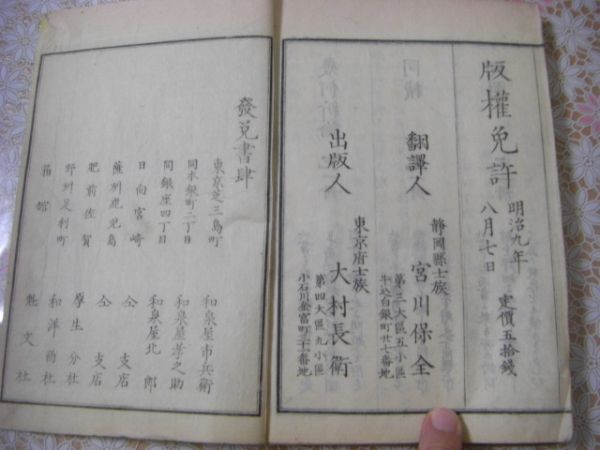 版權免許 明治九年 八月七日 定價五拾錢
翻譯人 靜岡縣士族 宮川保全
第三大區五小區
牛込白銀町廿七番地
出版人 東京府士族 大村長衛
第四大區九小區
小石川金富町三十番地
發兌書肆
東京芝三島町 和泉屋市兵衛
同本銀町二丁目 和泉屋孝之助
同銀座四丁目 和泉屋北郎
日向宮崎 仝支店
薩州鹿児島 仝支店
肥前佐賀 學生分社
野州足利町 和洋商社
箱館 魁文社